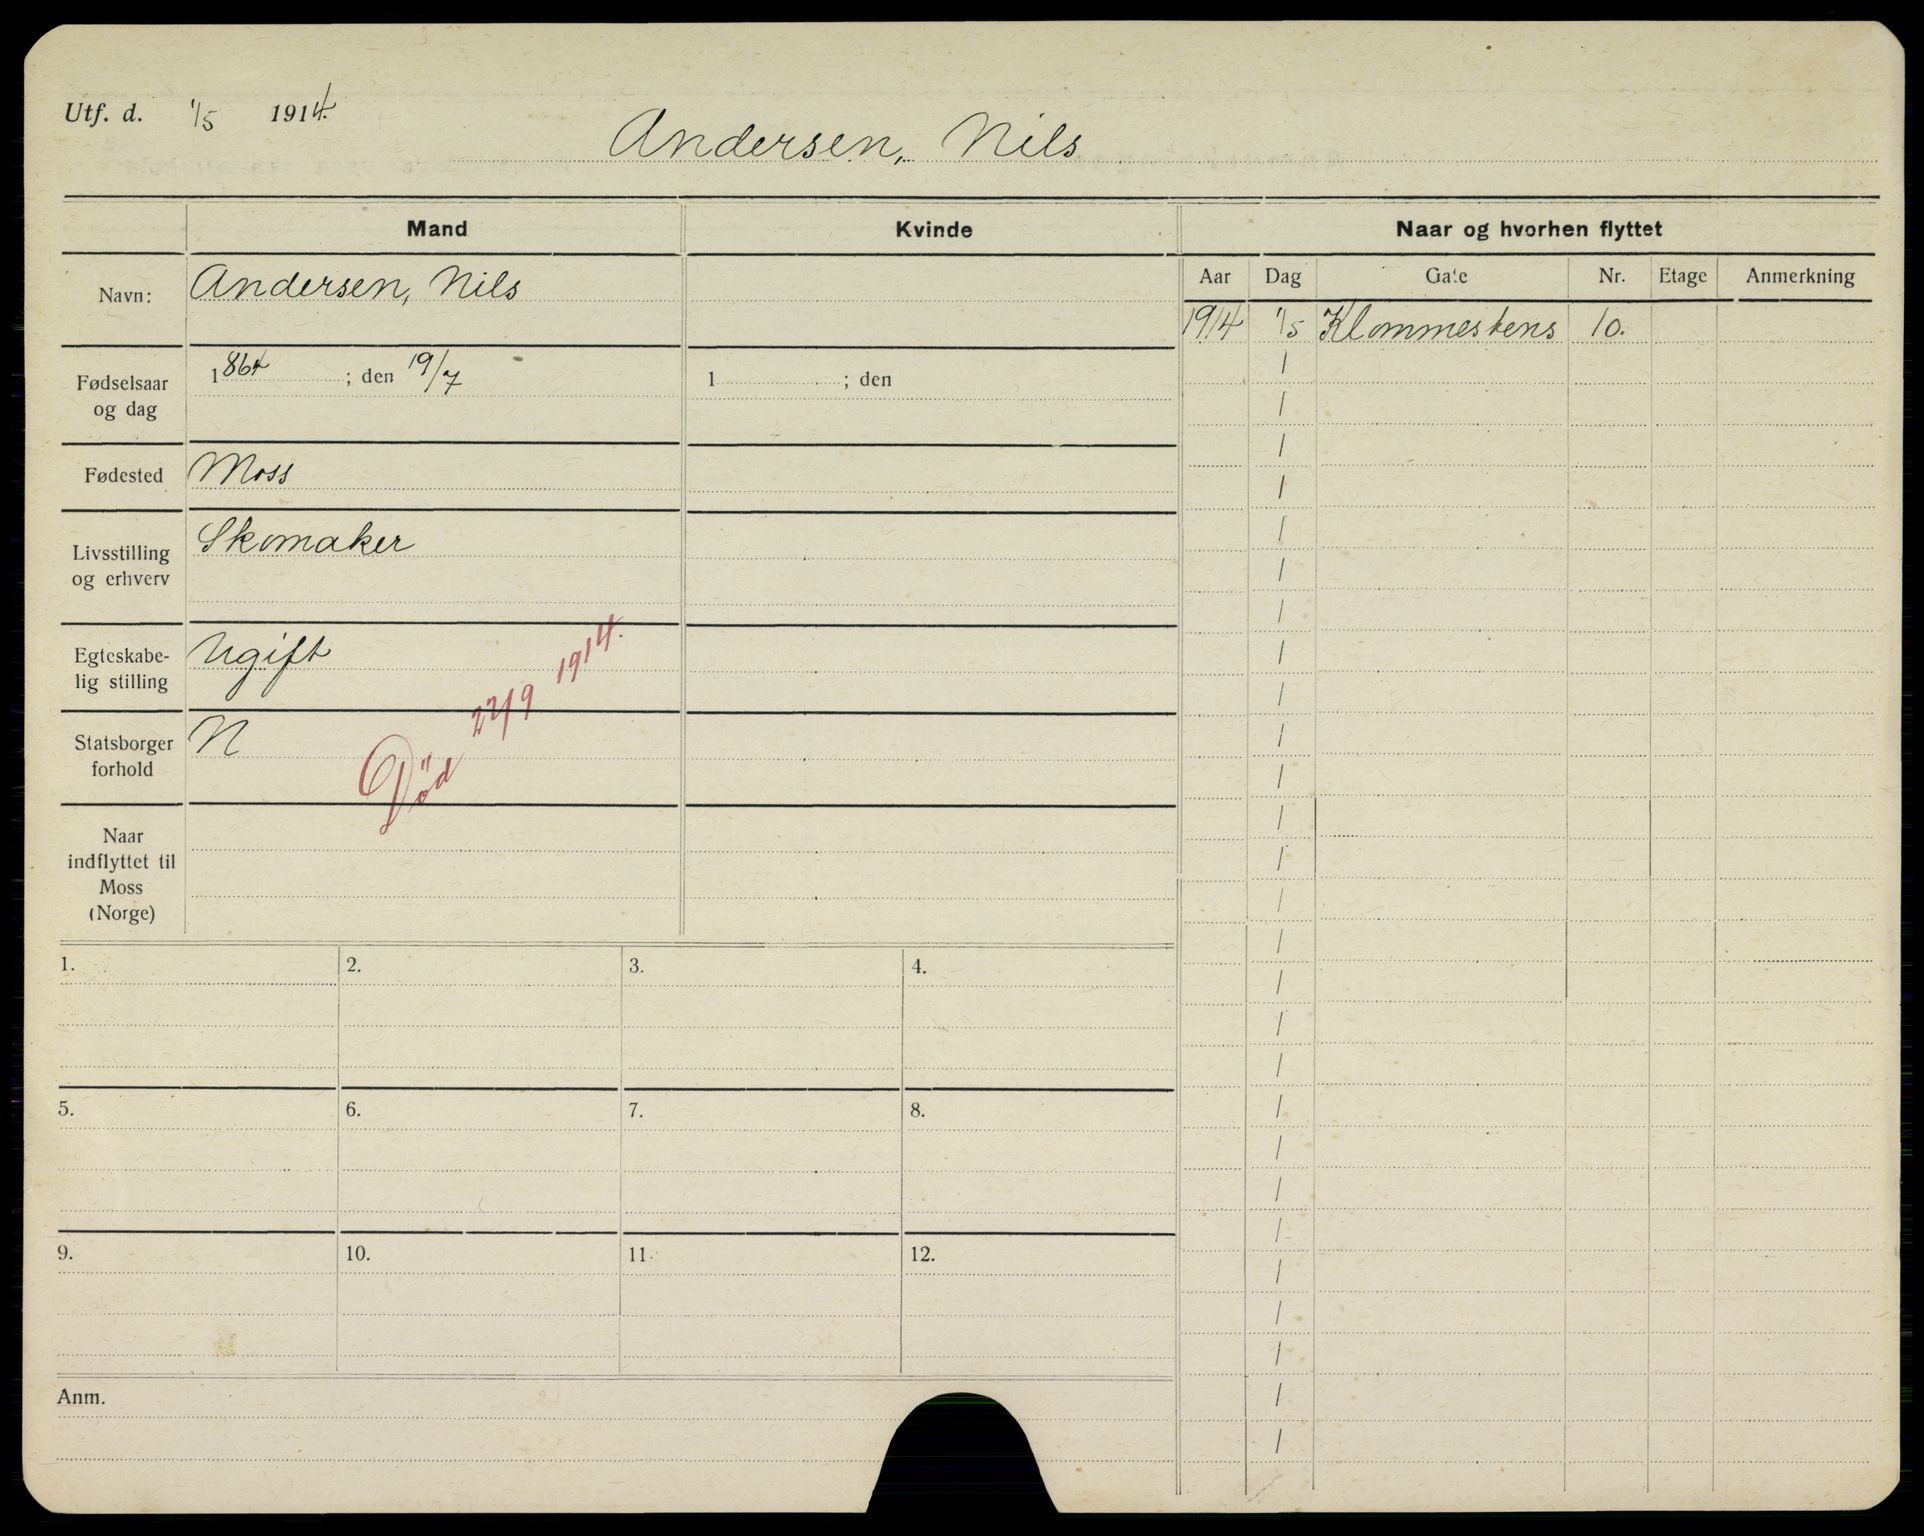 Utf. d. 1/5 1914.
Andersen, Nils
Mand Kvinde Naar og hvorhen flyttet
Aar Dag Gate Nr. Etage Anmerkning
Navn: Andersen, Nils
1914 1/5 Klommestens 10.
Fødselsaar og dag 1864 ; den 19/7
1 ; den
Fødested Moss
Livsstilling og erhverv Skomaker
Egteskabe-
lig stilling Ugift
Statsborger
forhold N
Død 22/9 1914.
Naar
indflyttet til
Moss
(Norge)
1. 2. 3. 4.
5. 6. 7. 8.
9. 10. 11. 12.
Anm.